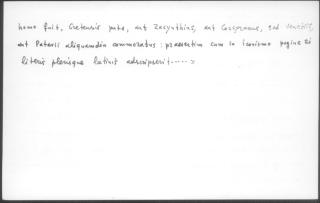 homo fuit, Cretensis puto, aut Zacynthius, aut Corcyraeus, sed Venetiis,
aut Patavii aliquamdiu commoratus : praesertim cum in pagine
literis plerisque latinis adscripserit.....»